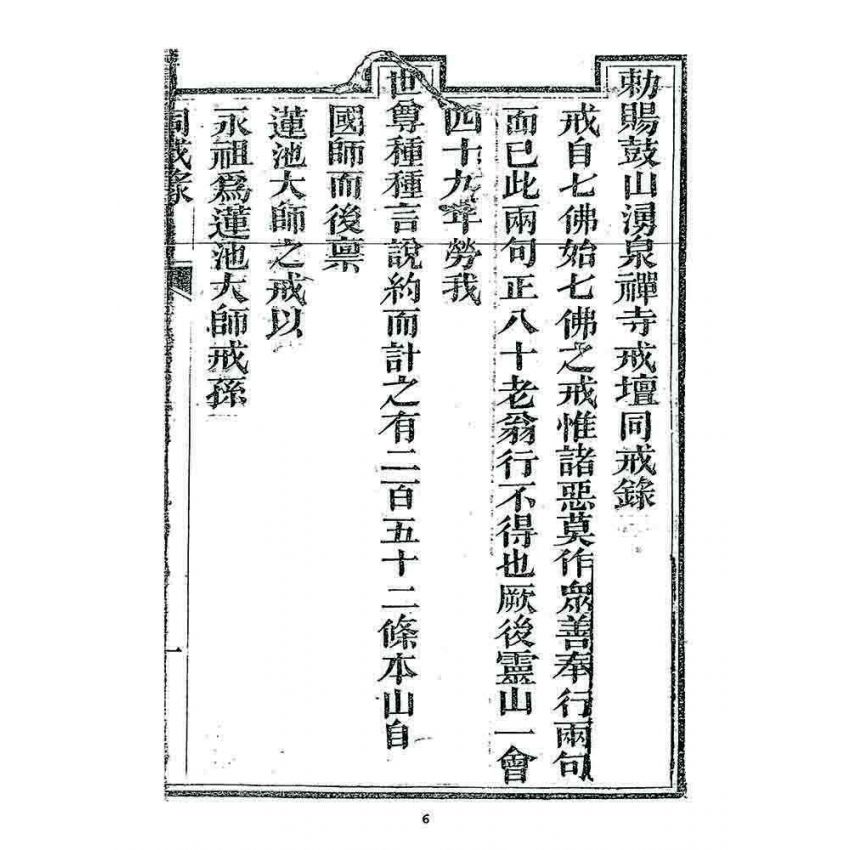 勅賜鼓山湧泉禪寺戒壇同戒錄
戒自七佛始七佛之戒惟諸惡莫作眾善奉行兩句
而已此兩句正八十老翁行不得也厥後靈山一會
四十九年勞我
世尊種種言說約而計之有二百五十二條本山自
國師而後稟
蓮池大師之戒以
永祖爲蓮池大師戒孫
同戒錄
一
6